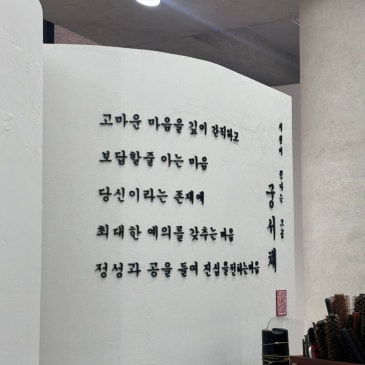 고마운 마음을 깊이 간직하고
보답할줄 아는 마음
당신이라는 존재에
최대한 예의를 갖추는마음
정성과 공을 들여 진심을전하는마음
궁서체